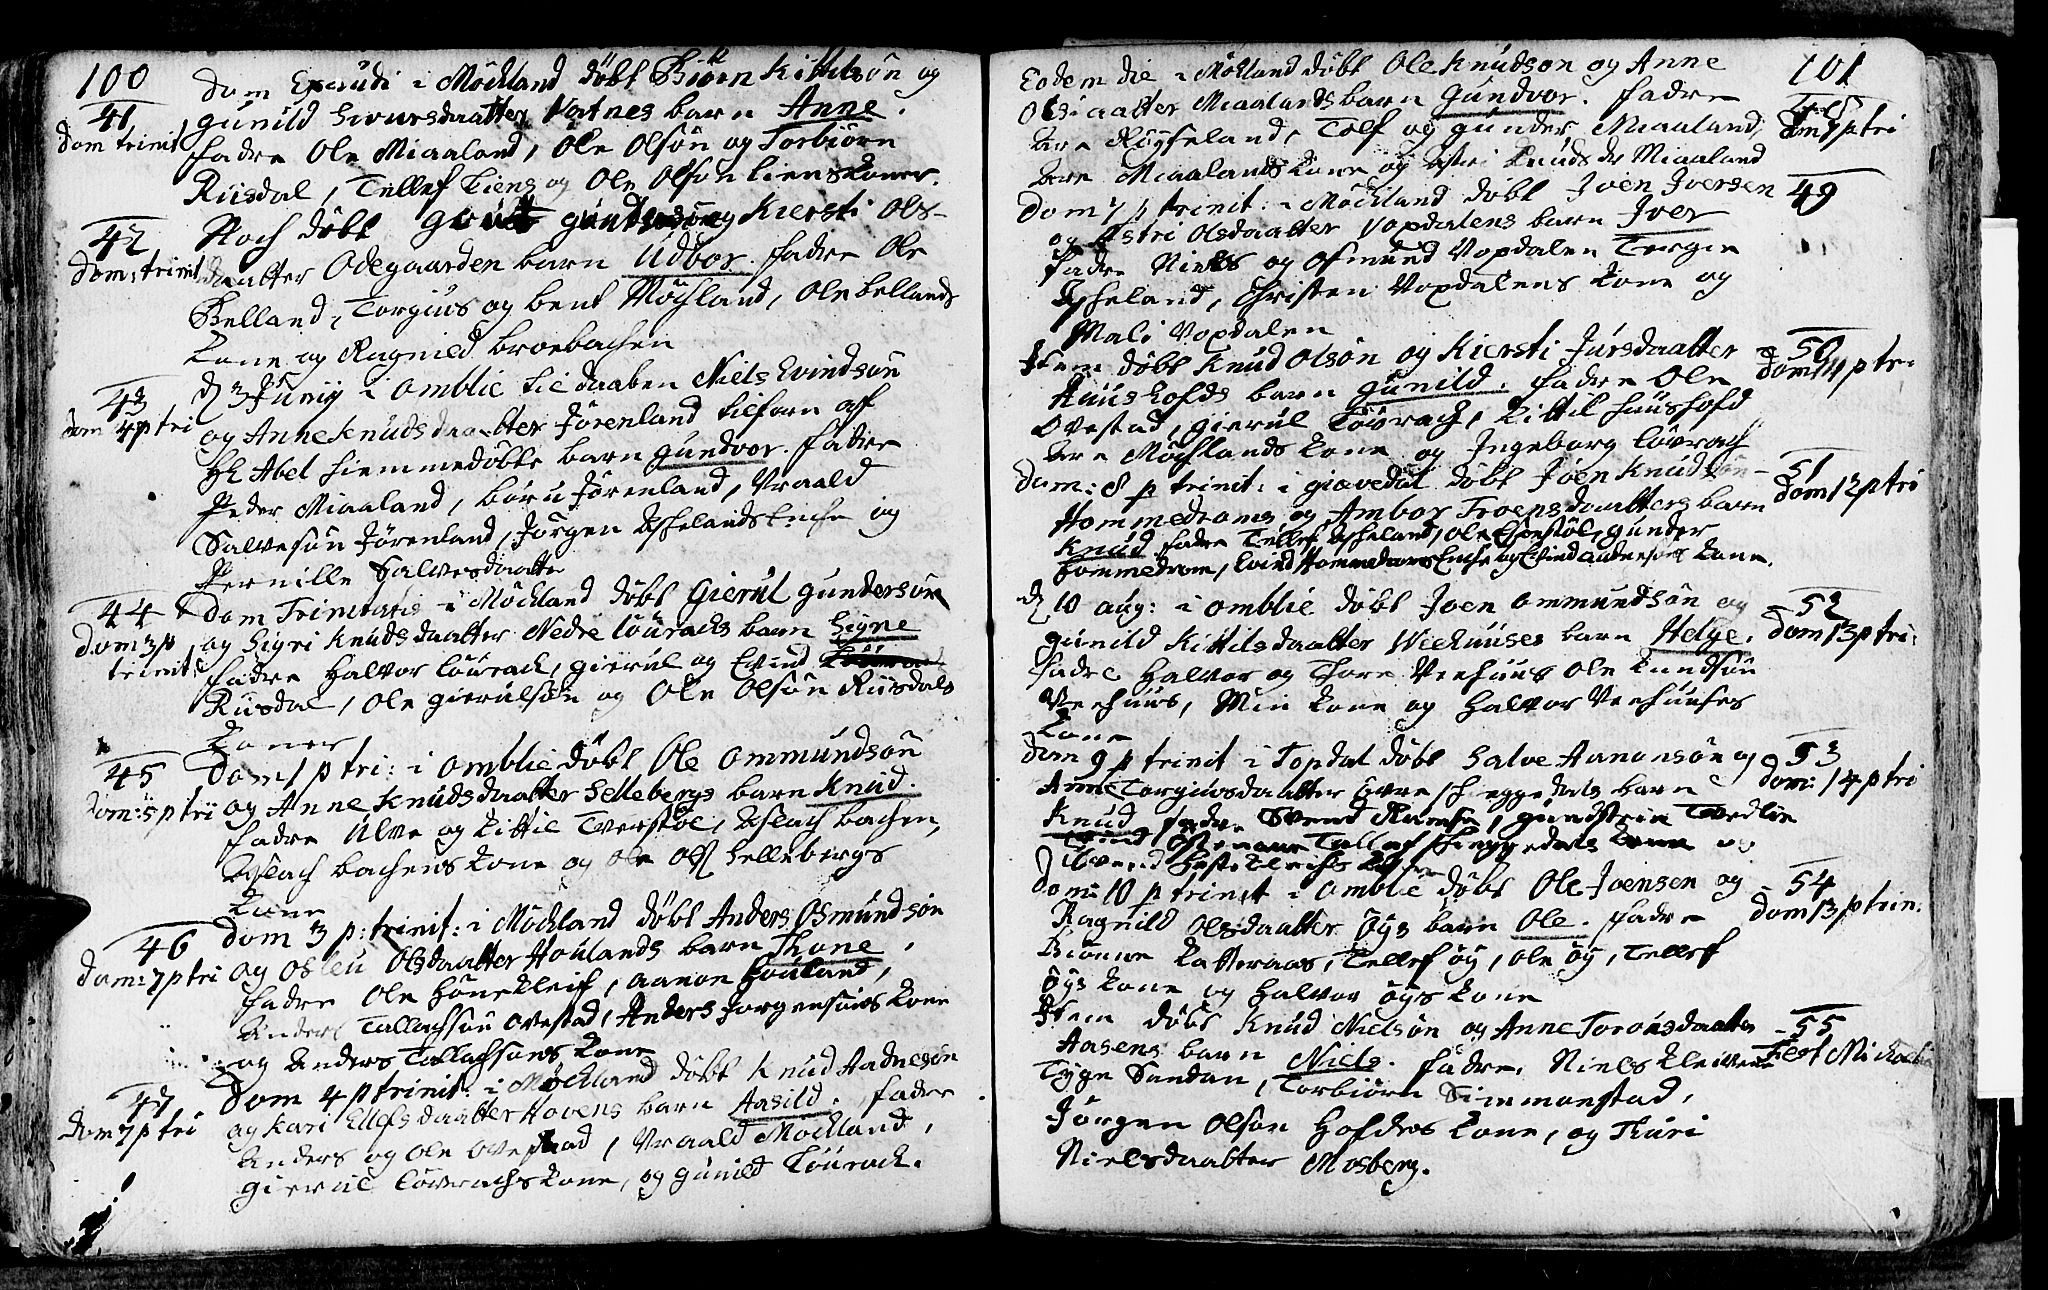 100
41
Dom trinit
Dom Exaudi i Möckland döbt Biörn Kittilsön og
Gunild Sivursdaatter Vatnes barn Anne.
Fadre Ole Miaaland, Ole Olsön og Torbiörn
Riisdal, Tellef Liens og Ole Olsön Liens koner.
42
Dom: trinit
Noch döbt Gundersön og Kiersti Ols-
daatter Ödegaarden barn Udbor. Fadre Ole
Belland, Torgius og bent Möchland, Ole bellands
kone og Ragnild broebachen
43
Dom 4 p tri
D 3 Junij i Omblie til daaben Niels Evindsön
og Anne Knudsdaatter Jörenland tilforn af
Hr Abel hiemmedöbte barn Gundvor. Fadre
Peder Miaaland, Jörenland, Vraald
Salvesön Jörenland, Jörgen Askelands enche og
Pernille Halvorsdaatter
44
Dom 3 p
trinit
Dom Trinitatis i Möckland döbt Gierul Gundersön
og Sigri Knudsdaatter Nedre Löuracks barn Signe
Fadre Halvor Löurack, Gierul og Evind
Riisdal, Ole Gierulsön og Ole Olsön Riisdals
koner
45
Dom: 5 p tri
Dom 1 p tri: i Omblie döbt Ole Ommundsön
og Anne Knudsdaatter Sellebergs barn Knud.
Fadre Ulve og Kittil Tverstöl, Aslach bachen,
Aslach bachens kone og Ole Ols Sellebergs
kone
46
Dom: 7 p tri
Dom 3 p: trinit: i Möckland döbt Anders Osmundsön
og Osleu Olsdaatter Houlands barn Thone.
Fadre Ole Hönekleif, Aanon Houland,
Anders Tallachsön Ovestad, Anders Jorgensöns kone
og Anders Tallachsöns kone
47
Dom 7 p tri
Dom 4 p trinit: i Möckland döbt Knud Aadnesön
og Kari Ellefsdaatter Hovens barn Aasild. Fadre
Anders og Ole Ovestad, Vraald Möckland,
Gierul Löurachs kone, og Gunild Löurack.
101
48
Dom 7 p tri
Eodem die i Möckland döbt Ole Knudsön og Anne
Olsdaatter Miaalands barn Gundvor. Fadre
Are Röyseland, Tolf og Gunder Miaaland,
Are Miaalands kone og Astri Knuds dr Miaaland
49
Dom 7 p trinit: i Möckland döbt Joen Joersen
og Astri Olsdaatter Vopdalens barn Iver
Fadre Niels og Osmund Vopdalen Torgie
Askeland, Christen Vopdalens kone og
Mali Vopdalen
50
Dom 14 p tri:
Item döbt Knud Olsön og Kiersti Jursdaatter
Huusholfs barn Gunild. Fadre Ole
Ovestad, Gierul Löurach, Kittil Huusholfd
Are Möchlands kone og Ingeborg Löurach
51
Dom 12 p tri
Dom: 8 p trinit: i Giövedal döbt Joen Knudsön
Hommedroms og Ambor Troensdaatters barn
Knud Fadre Tellef Askeland, Ole Espestöl, Gunder
Hommedrom, Evind Hommedroms Enche og Evind Andersöns kone.
52
Dom 13 p tri:
D 10 Aug: i Omblie döbt Joen Ommundsön og
Gunild Kittilsdaatter Veehuuses barn Helge.
Fadre Halvor og Thore Veehuus Ole Knudsön
Veehuus, Min kone og Halvor Veehuuses
kone
53
Dom: 14 p tri
Dom 9 p trinit i Topdal döbt Salve Aanonsön og
Anne Torgiusdaatter övre Skeggedals barn
Knud Fadre Svend Ramse, Gundstein Tvedlie
Tallef Skeggedals kone og
54
Dom 13 p trin:
Dom: 10 p trinit i Omblie döbt Ole Joensen og
Ragnild Olsdaatter Öys barn Ole. Fadre
Biönne Katteraas, Tellef Öy, Ole Öy, Tellef
Öys kone og Halvor Öys kone
55
Fest Michaelis
Item döbt Knud Nielsön og Anne Torönsdaatter
Aasens barn Niels. Fadre, Niels Kleiven
Tyge Sandan, Torbiörn Simmonstad,
Jörgen Olsön Hofdes kone, og Thuri
Nielsdaatter Mosberg.